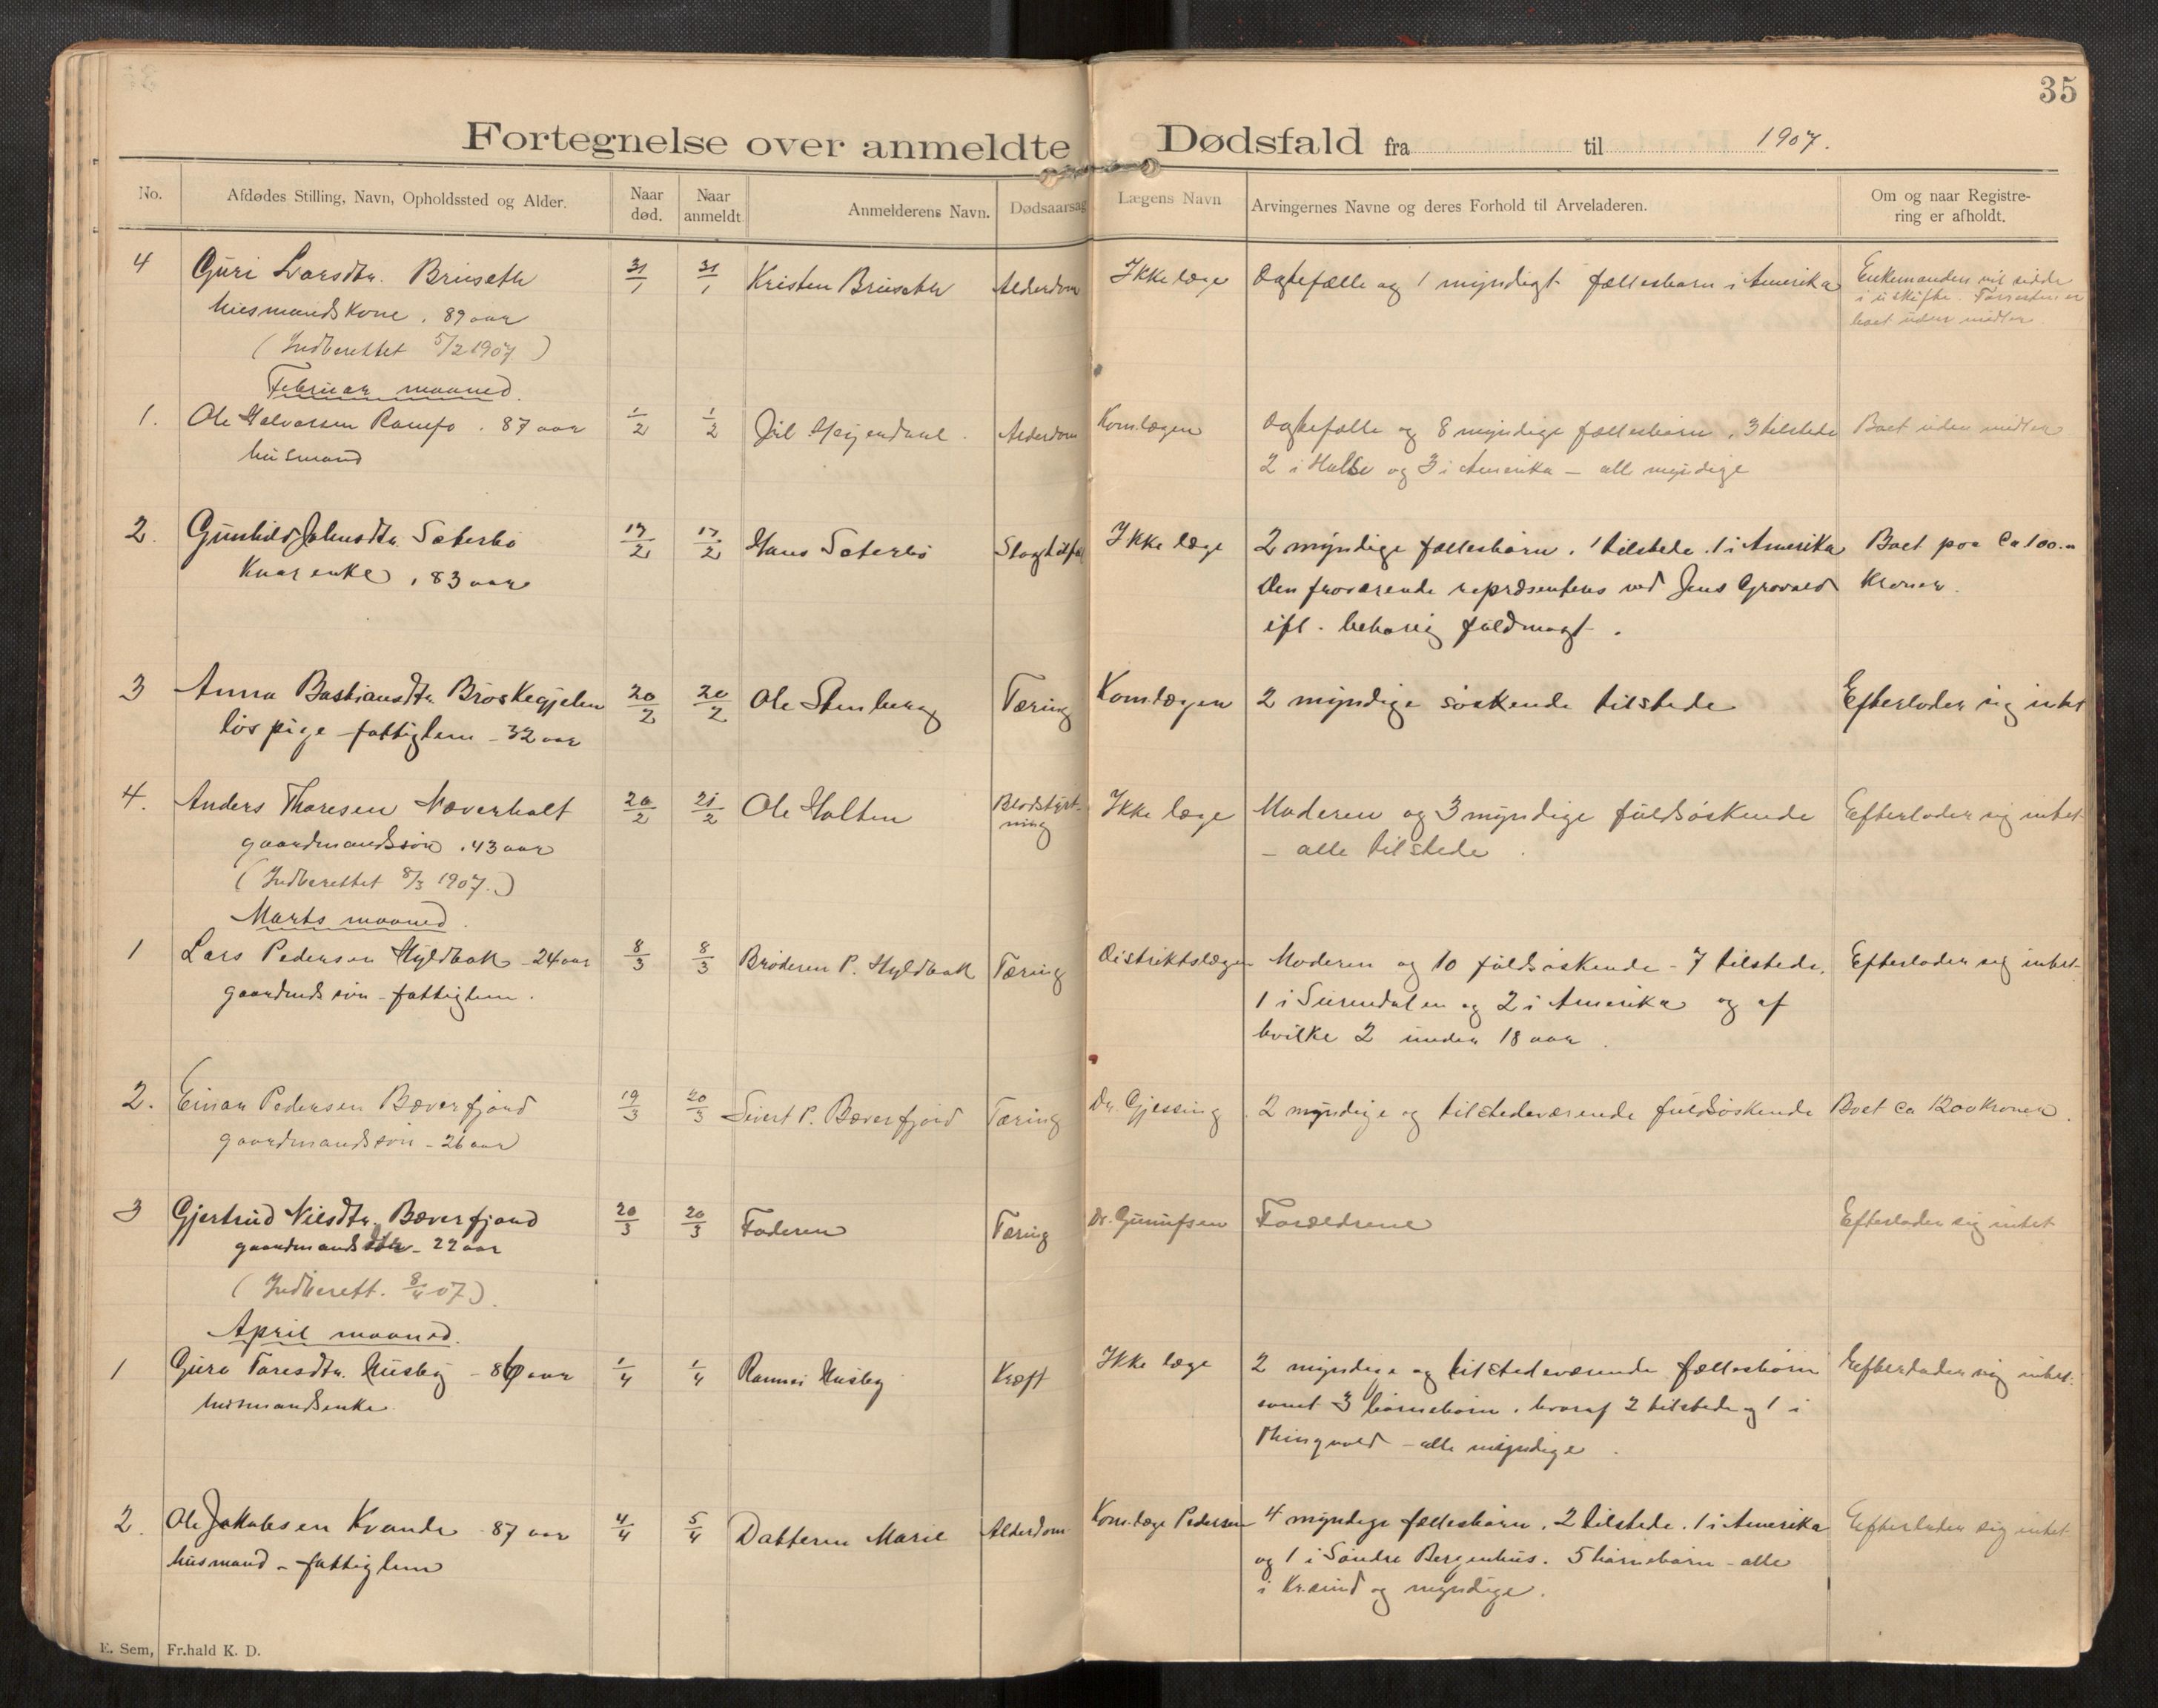 35
Fortegnelse over anmeldte Dødsfald fra til 1907.
No. Afdødes Stilling, Navn, Opholdssted og Alder. Naar død. Naar anmeldt Anmelderens Navn. Dødsaarsag Lægens Navn Arvingernes Navne og deres Forhold til Arveladeren. Om og naar Registrering er afholdt.
4 Guri Larsdtr. Bruseth 31/1 31/1 Kristen Bruseth Alderdom Ikke læge Ægtefælle og 1 myndigt fællesbarn i Amerika Enkemanden vil sidde
husmandskone, 89 aar i uskifte. Forresten er
(Indberettet 5/2 1907) boet uden midler
Februar maaned.
1. Ole Halvorsen Ramsø. 87 aar 1/2 1/2 Alderdom Kom.lægen Ægtefælle og 8 myndige fællesbørn, 3 tilstede Boet uden midler
husmand 2 i Halse og 3 i Amerika – alle myndige
2. Gunhild Johnsdtr. Sæterbø 17/2 17/2 Hans Sæterbø Ikke læge 2 myndige fællesbørn. 1 tilstede. 1 i Amerika Boet paa Ca 100.–
Kaarenke, 83 aar Den fraværende repræsenteres ved Jens Grovald Kroner.
ifl. behørig fuldmagt.
3 Anna Bastiansdtr. Brøskegjelen 20/2 20/2 Ole Stenberg Tæring Kom.lægen 2 myndige søskende tilstede Efterlader sig intet
løs pige – fattiglem – 32 aar
4. Anders Thoresen Næverholt 20/2 21/2 Ole Holten Blodstyrt- Ikke læge Moderen og 3 myndige fuldsøskende Efterlader sig intet
gaardmandssøn, 43 aar ning – alle tilstede.
(Indberettet 8/3 1907.)
Marts maaned.
1 Lars Pedersen Hyldbak – 24 aar 8/3 8/3 Broderen P. Hyldbak Tæring Distriktslægen Moderen og 10 fuldsøskende – 7 tilstede, Efterlader sig intet
gaardmds søn – fattiglem. 1 i Surendalen og 2 i Amerika og af
hvilke 2 under 18 aar.
2. Einar Pedersen Bæverfjord 19/3 20/3 Sivert P. Bæverfjord Tæring Dr. Gjessing 2 myndige og tilstedeværende fuldsøskende Boet ca 1200 Kroner.
gaardmandssøn – 26 aar
3 Gjertrud Nilsdtr. Bæverfjord 20/3 20/3 Faderen Tæring Dr. Forældrene Efterlader sig intet
gaardmandsdtr – 22 aar
(Indberett. 8/4 07).
April maaned.
1 Guro Toresdtr. Husby – 86 aar 1/4 1/4 Husby Kræft Ikke læge 2 myndige og tilstedeværende fællesbørn Efterlader sig intet.
husmandsenke. samt 3 børnebørn, hvoraf 2 tilstede og 1 i
Thingvold – alle myndige.
2. Ole Jakobsen Kvande 87 aar 4/4 5/4 Datteren Marie Alderdom Kom.læge Pedersen 4 myndige fællesbørn. 2 tilstede. 1 i Amerika Efterlader sig intet
husmand – fattiglem og 1 i Søndre Bergenhus. 5 børnebørn – alle
i Kr.sund og myndige.
E. Sem, Fr.hald K. D.